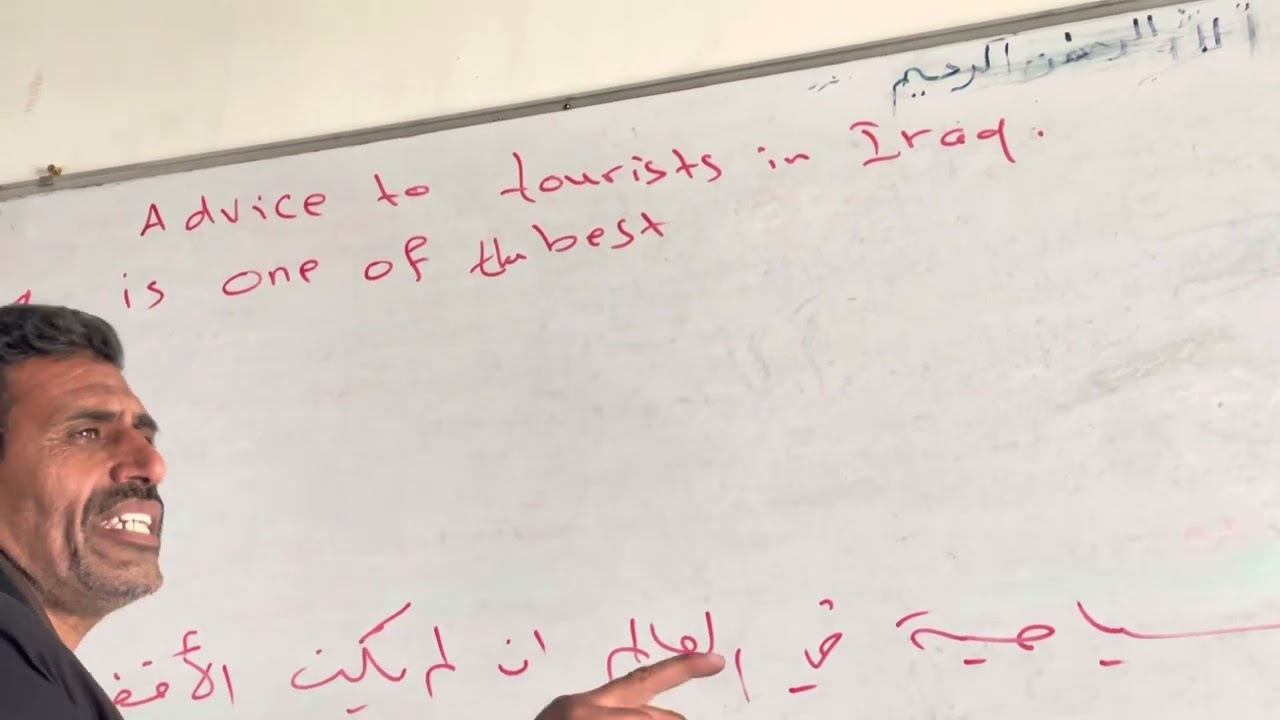 الله الرحمن الرحيم
Advice to tourists in Iraq.
is one of the best
سياحية في العالم ان لم يكن الأفضل